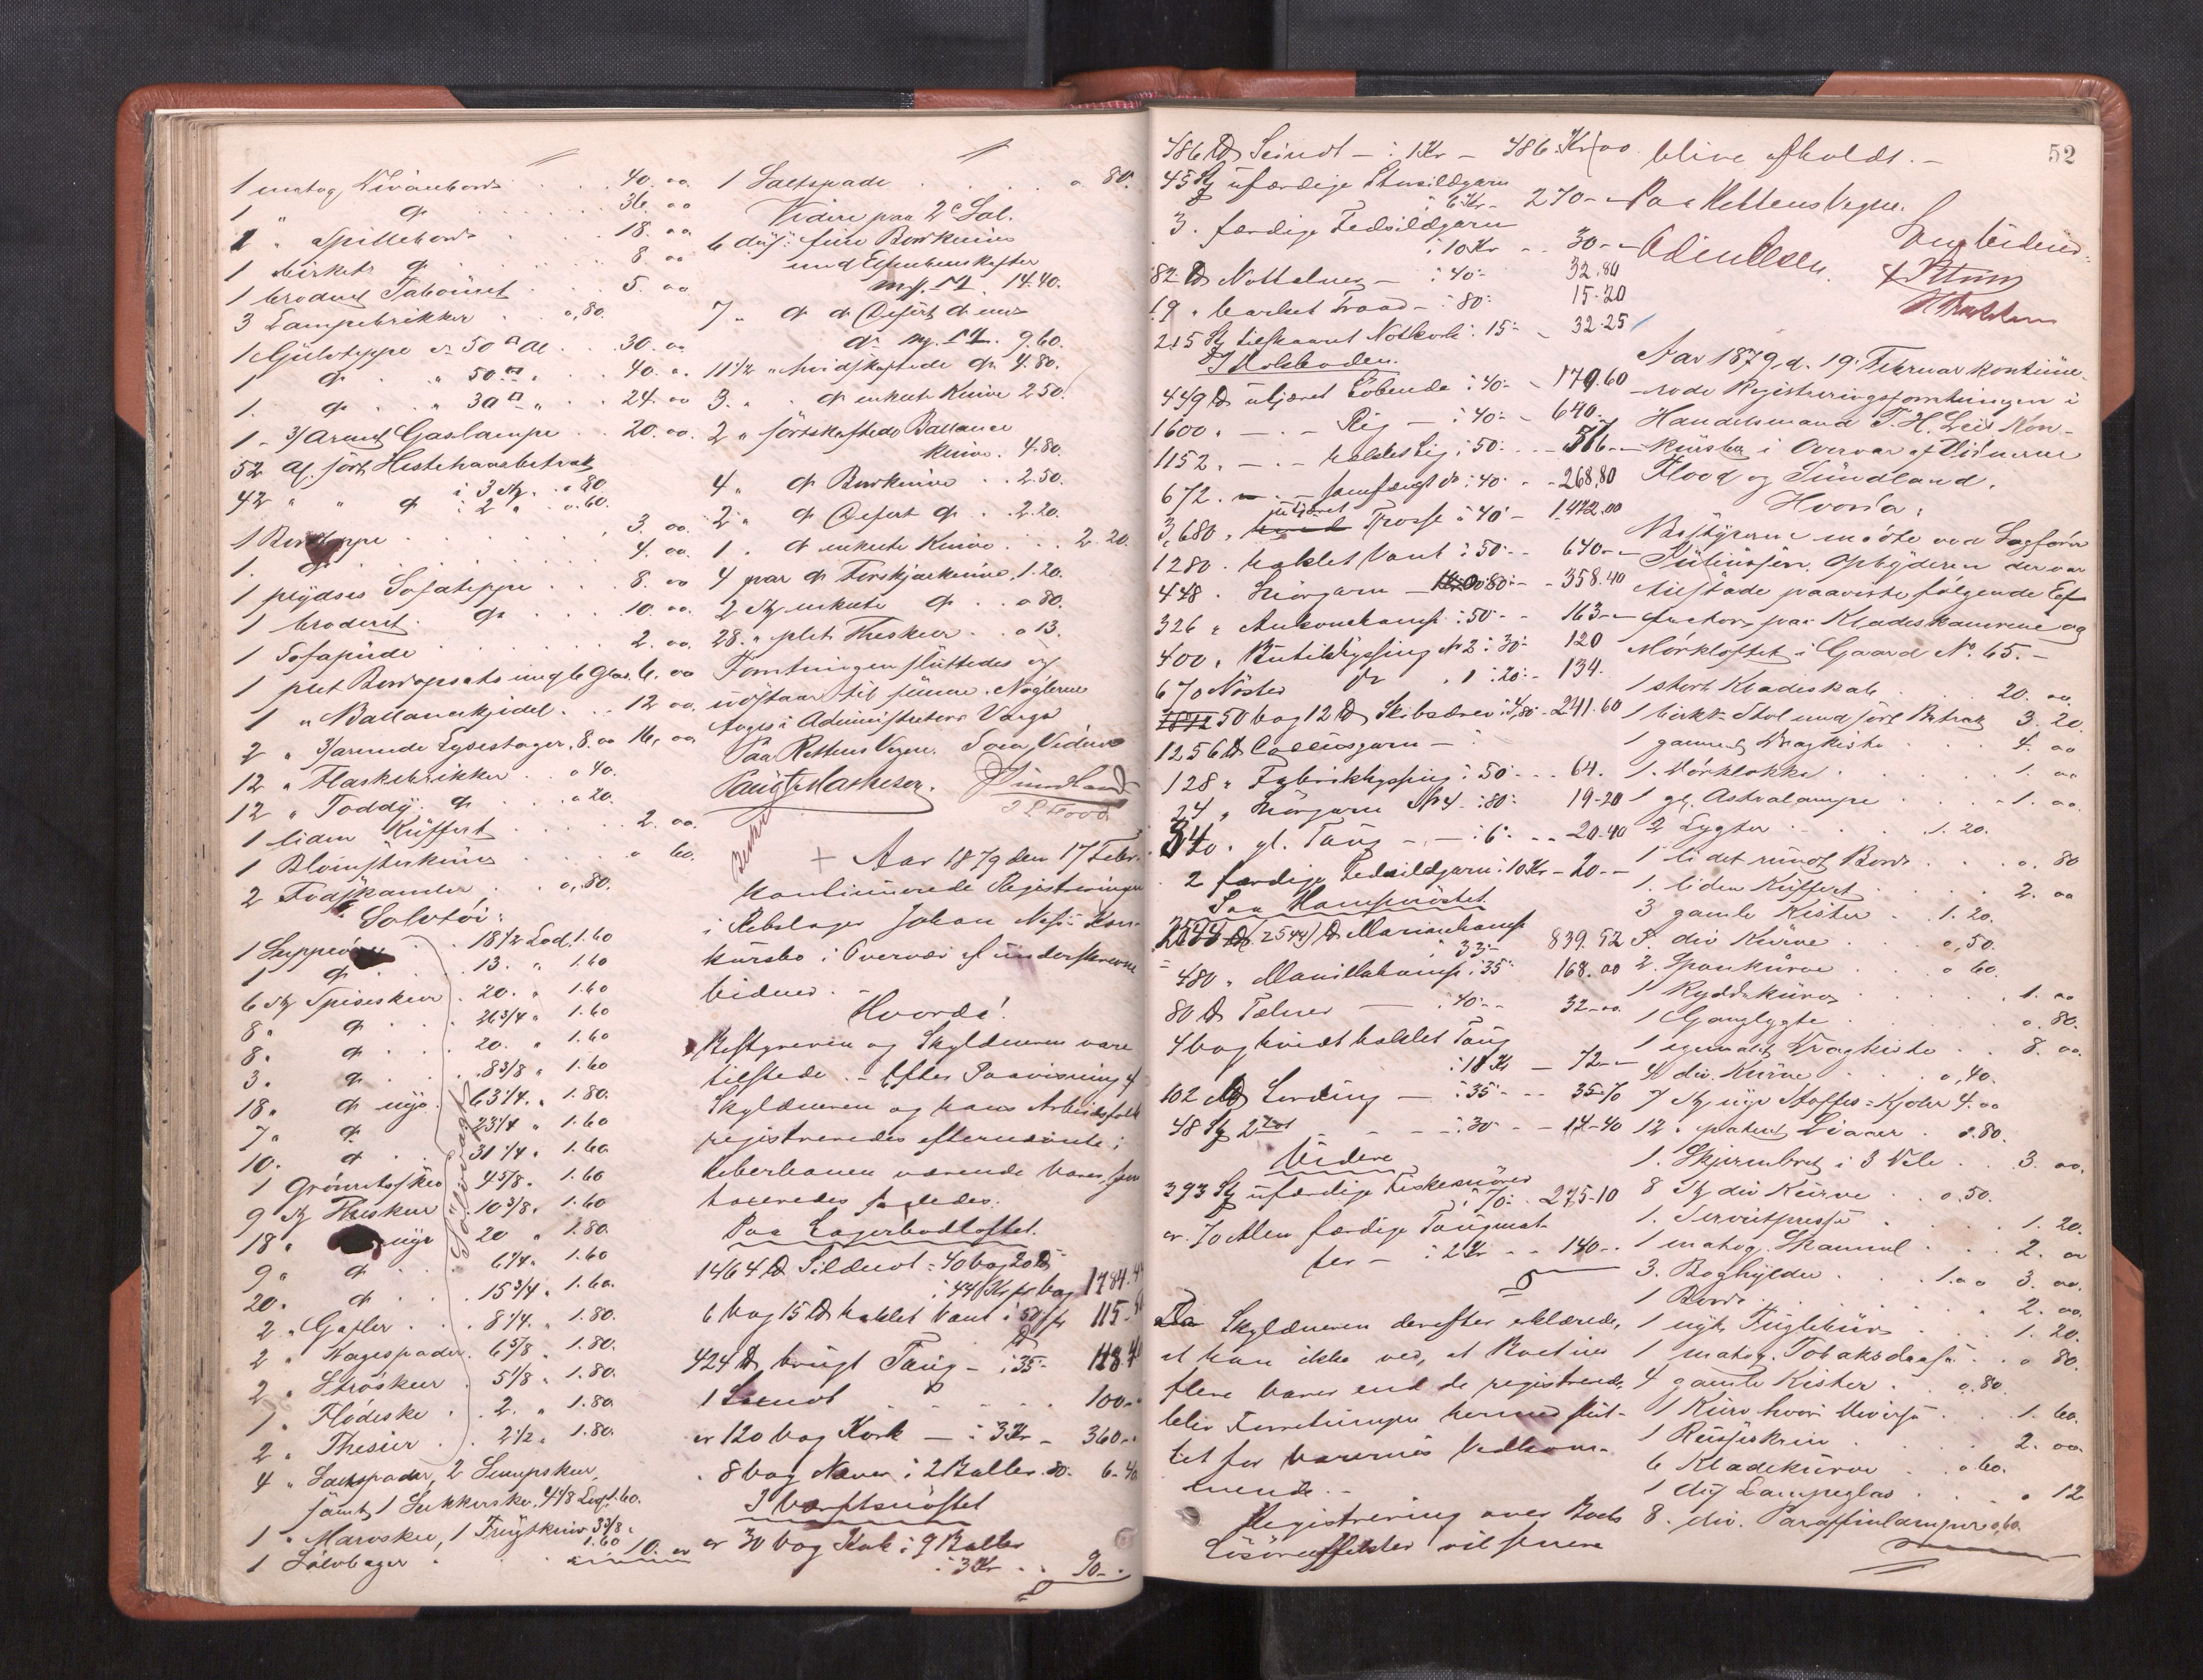 1 mahog. Divanbord . . . 40. oo
1 " do . . . . . 36. oo
1 " Spillebord . . . 18. oo
1 birket do . . . . 8. oo
1 broderet Tabouret . . . 5. oo
3 Lampebrikker . . o,80.
1 Gulvteppe a 50 □ Al . . 30. oo
1 do . . " 50 □ " . . 40. o.
1. do . . " 30 □ " . . 24. oo
1 - 3/Armet Gaslampe . . 20. oo.
52 Al. sort Hestehaarsbetræk
i 3 St. . o 80
42 " " do i 2 " . o.60.
1 Bordteppe . . . . 3. oo.
1. do . . . . 4. oo.
1 plydses Sofateppe . . . 8. oo
1 broderet do . . . 10. oo.
1 Sofapude . . . . 2. oo.
1 plet Bordopsats med 6 Glas. 6. oo
1 " Ballancekjedel . . . 12 oo.
2 " 3/armede Lysestager, 8. oo 16, oo
12 " Flaskebrikker . . o 40.
12 " Toddy do . . . o 20.
1 liden Kuffert . . . . 2. oo.
1 Blomsterskuur . . . . o 60.
2 Fodskamler, . . o,80.
Solvtøi:
1 Suppeøse . . 18 1/2 Lod. 1.60
1 do . . . 13. " 1.60
6 St Spiseskeer . 20. " 1.60
8 " do . . . 26 3/4 " 1.60
8. do . . . 20. " 1.60
3. do . . . 8 3/8 " 1.60
18 " do nye . 63 1/4. " 1.80.
7 " do . . 23 1/4 " 1.60
10. do . . 31 1/4 . 1.60
1 Grønsagsske 4 5/8 . 1.60
9 St Theskeer . 10 3/8 . 1.60
18 " nye 20 " 1.80.
9 " do . . 6 1/4 . 1.60
20. do . . 15 3/4 . 1.60.
2 " Gafler . . . 8 1/4. " 1.80.
2 " Kagespader . 6 5/8 . 1.80.
2 . Strøskeer . 5 1/8 . 1.80.
1 . Flødeske . . 2. " 1.80
2 . Thesier . . 2 1/2 . 1.80.
4 " Saltspader, 2 Senepskeer,
samt 1 Sukkerske. 4 1/8 Lod 1.60.
1 . Marvske, 1 Frugtkniv 3 3/8 .
1.60
1 Sølvbæger . . . . 10. oo
1 Saltspade . . . . o 80.
Videre paa 2e Sal.
6 dus: fine Bordknive
med Elfenbensskafter
14.40.
7 " do do Desert do med
do 9.60.
11 1/2 " hvidskaftede do 4.80.
3. " . do enkelte Knive 2.50.
2 " sortskaftede Ballance
knive. 4.80.
4 " do Bordknive . . 2.50.
2 " do Desert do . . 2.20.
1 . do enkelte Knive . . . 2.20.
4 par do Forskjærknive, 1.20.
2 St enkelte do . . o 80.
28. " plet Theskeer . . o 13.
Forretningen sluttedes og
udstaar til senere. Nøglerne
toges i Administrators Varge
Paa Rettens Vegne. Som Vidner
Paust Mathiesen. Sundland
J L Flood
+ Aar 1879 den 17 Febr.
kontinuerede Registreringen
i Rebslager Johan Næss' Kon-
kursbo i Overvær af underskrevne
Vidner. -
Hvorda!
Bestyreren og Skyldneren vare
tilstede. - Efter Paavisning af
Skyldneren og hans Arbeidsfolk
registreredes efternævnte i
Reberbanen værende Varer, som
taxeredes saaledes.
Paa Lagerbodloftet.
1464 ℔ Sildenot = 40 Vog 24 ℔
i 44 Kr pr Vog 1784.
6 Vog 15 ℔ haklet Vant i 50 115.
424 ℔ brugt Taug - i 35 - 148.40
1 Seinot . . . . . 100 -
er 120 Vog Kork - i 3 Kr - 360 -
. 8 Vog Næver i 2 Baller. 80 - 6-40
I Værftsnøstet
er 30 Vog Kork i 9 Baller
i 3 Kr . . 90 -
52
486 ℔ Seinot - i 1 Kr - 486 Kr oo
45 St ufærdige Storsildgarn
i 6 Kr - 270 -
3. færdige Fedsildgarn
i 10 Kr - . 30 -
82 ℔ Nottelner - i 40 - 32.80
19 " barket Traad - i 80: 15-20
215 St tilskaaret Notkork i 15 - 32-25
I Holsboden.
449 ℔ utjæret Løbende i 40 - 179.60
1600 . - . - Rig - i 40 - 640.
1152 . - . - haklet Rig i 50 . . 576 -
672 . - . - i 40 - - 268,80
3,680 . utjæret Trosse i 40 - 1,472.00
1280 . haklet Vant i 50 - - 640 -
448 . Liørgarn - 80 - - 358.40
326 " Ankerhamp i 50 - . 163 -
400 . Butikhyssing No 2 i 30 - 120
670 Nøster do . 1 i 20 - 134.
50 Vog 12 ℔ Skibsdrev i 4,80 - 241.60
1256 ℔ Caliusgarn - i
128 " Fabrikhyssing i 50 - - 64.
24 " Liørgarn No 4 - i 80 - 19-20
340 . gl. Taug - - i 6 - - . 20-40
2 færdige Fedsildgarn i 10 Kr - 20 -
Paa Hampnøstet
(2544) ℔ Marinehamp
i 33 - 839.52
480 . Manillahamp. i 35 - 168.00
80 ℔ Tælner - i 40 - - 32-oo
4 Vog hvidt haklet Taug
i 18 Kr - 72 -
102 ℔ Lording - i 35 - - 35-70
48 St 2ter - - - i 30 - - 14-40
Videre
393 St ufærdige Fiskesnører
i 70 - 275-10
er 70 Alen færdige Taugmat-
ter - i 2 Kr - - 140 -
Da Skyldneren derefter erklærede,
at han ikke ved, at Boet eier
flere Varer end de registrerede,
blev Forretningen hermed slut-
tet for Varernes Vedkom-
mende. -
Registrering over Boets
Løsøreeffekter vil senere
blive afholdt. -
Paa Rettens Vegne.
Odin Olsen. Som Vidner:
Aar 1879, d. 19. Februar kontinue-
rede Registreringsforretningen i
Handelsmand T. H. Leis Kon-
kursbo i Overvær af Vidnerne
Flood og Sundland.
Hvorda,
Bestyreren mødte ved Sagfører
Juliussen. Opbyderen der var
tilstede paaviste følgende Ef-
fecter paa Klædeskamrene og
Mørkloftet i Gaard No. 65. -
1 stort Klædeskab . . 20. oo.
1 birkt Stol med sort Betræk 3.20
1 gammel Dragkiste . . . 4. oo
1. Mørklokke . . . . 1. oo
1 gl. Astrallampe . . . . 1. oo.
2 Lygter . . . . 1.20.
1 lidet rundt Bord . . . . o. 80
1. liden Kuffert . . . . 2. oo
3 gamle Kister . . 1.20.
5. div Kurve . . . o,50.
2. Spankurve . . . o 60.
1 Ryddekurv . . . . 1. oo
1 Ganglygte . . . . o. 80.
1 egemalet Dragkiste . . 8. oo.
4 div. Kurve . . . o,40.
7 St nye Stoffes-Kjoler 4. oo
12 . patent Liaaer . 0.80.
1. Skjermbret i 3 Dele . . 3. oo.
8 St div Kurve . . o,50.
1. Servietpresse . . . . 1.20.
1 mahog. Skammel . . . 2. oo
3. Boghylder . . . 1. oo 3. oo.
1 Bord . . . . . 2. oo.
1 nyt Fuglebuur . . . 1.20.
1 mahog. Tobaksdaase . . o 80.
4 gamle Kister . . o.80.
1 Kurv hvori diverse . . . 1.60.
1 Reiseskrin . . . . 2. oo.
6 Klædekurve . . o 60.
1 dus Lampeglas . . . . o 12
8. div. Paraffinlamper o,60.